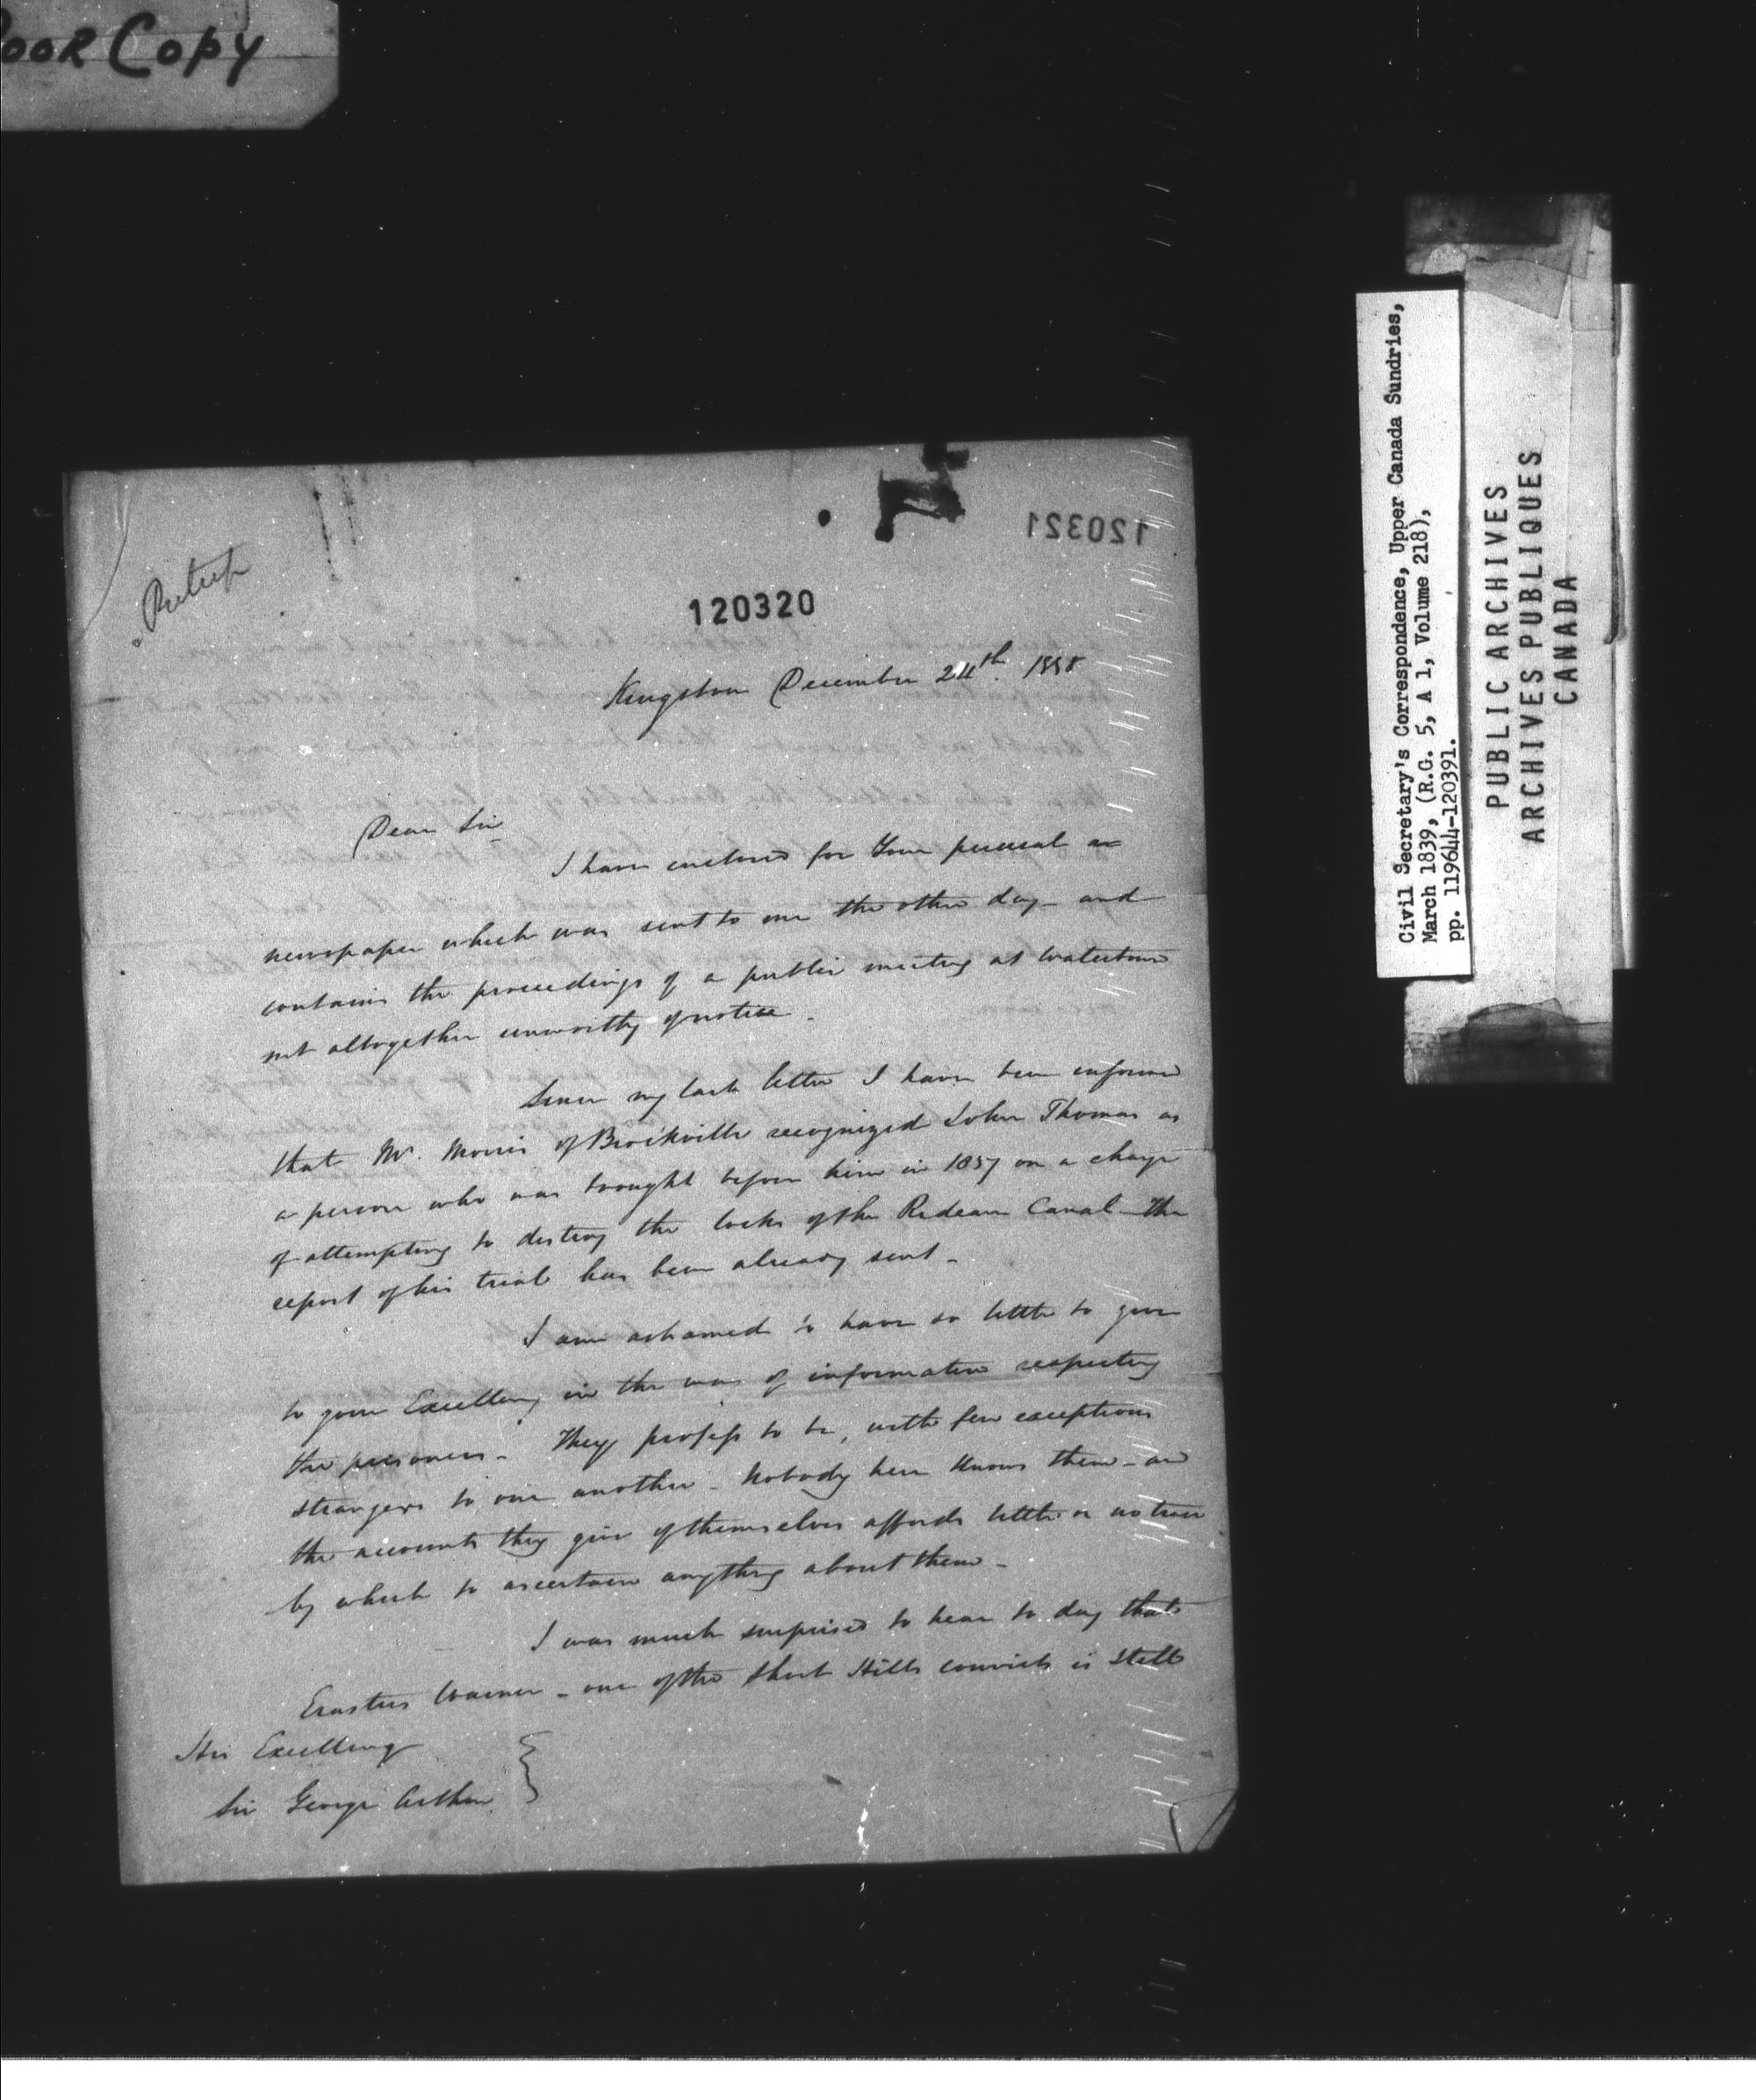 POOR COPY
120321
120320
Kingston December 24th. 1838
Dear Sir
I have enclosed for Your perusal a
newspaper which was sent to me the other day - and
contains the proceedings of a public meeting at Watertown
not altogether unworthy of notice.
Since my last letter I have been informed
that Mr. Morris of Brockville recognized John Thomas as
a person who was brought before him in 1837 on a charge
of attempting to destroy the locks of the Rideau Canal - The
report of his trial has been already sent -
I am ashamed to have so little to give
to your Excellency in the way of information respecting
the prisoners - They profess to be, with few exceptions
strangers to one another - Nobody here knows them - and
the accounts they give of themselves affords little or no trace
by which to ascertain anything about them -
I was much surprised to hear to day that
Erastus Warner - one of the Short Hills convicts is still
His Excellency
Sir George Arthur
Civil Secretary's Correspondence, Upper Canada Sundries,
March 1839, (R.G. 5, A 1, Volume 218),
pp. 119644-120391.
PUBLIC ARCHIVES
ARCHIVES PUBLIQUES
CANADA